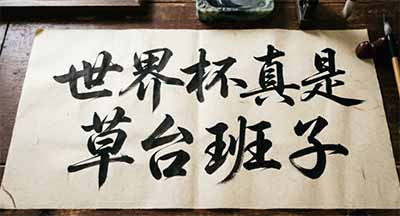 世界杯真是
草台班子